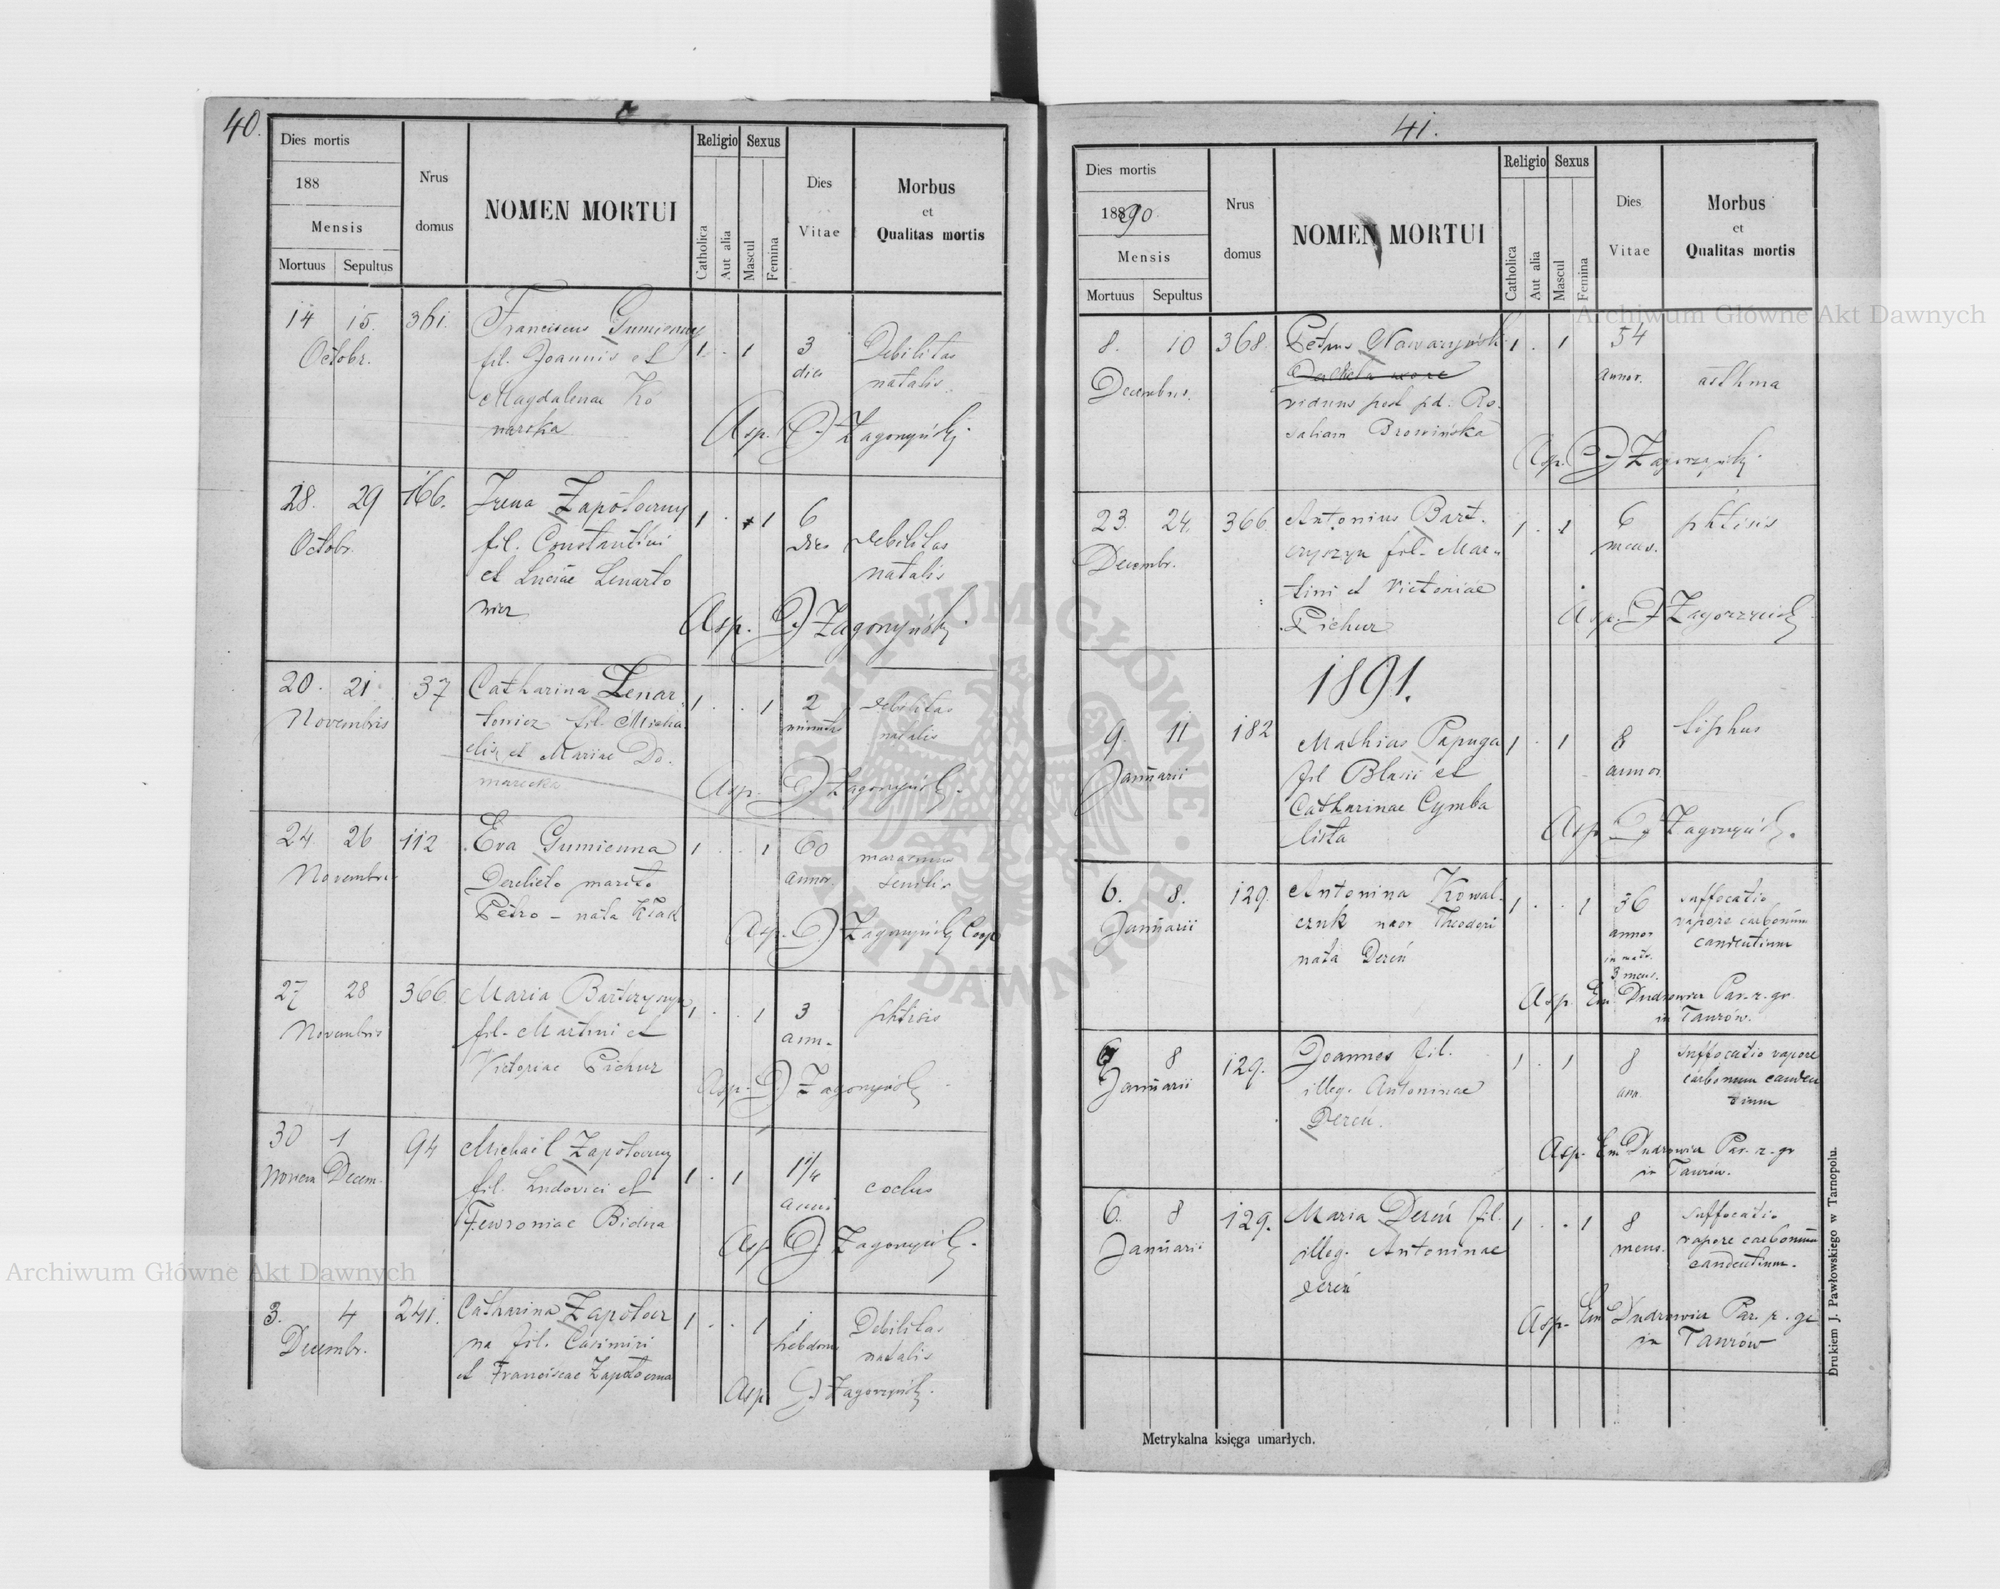 40.
Dies mortis
188
Mensis
Mortuus Sepultus
Nrus
domus
NOMEN MORTUI
Religio
Catholica
Aut alia
Sexus
Mascul
Femina
Dies
Vitae
Morbus
et
Qualitas mortis
14 15. 361. Franciscus Gumienny 1 . 1 3 Debilitas
Octobr. fil. Joannis et dies natalis
Magdalenae Ko
narska Asp. Zagórzyński
28. 29 166. Irena Zapłotyny 1 . 1 6 Debilitas
Octobr. fil. Constantini dies natalis
et Luciae Lenarto
wicz Asp. Zagórzyński
20. 21 37 Catharina Lenar 1 . . 1 2 debilitas
Novembris towicz fil. Micha minuts natalis
elis et Mariae Do
marecka Asp. Zagórzyński
24 26 112 Eva Gumienna 1 . . 1 60 marasmus
Novembris Derelicto marito annor. senilis
Petro - nata Kłak
Asp. Zagórzyński Coop
27 28 366 Maria Bartczyszyn 1 . . 1 3 phtisis
Novembris fil. Martini et ann.
Victoriae Pichur
Asp. Zagórzyński
30 1 94 Michail Zapłotyny 1 . 1 1 1/4
Novem Decem. fil. Ludovici et anni
Fewroniae Bidna
Asp. Zagórzyński
3. 4 241. Catharina 1 . . 1 1 Debilitas
Decembr. na fil. Casimiri hebdom natalis
et Franciscae
Asp. Zagórzyński
41.
Dies mortis
18890
Mensis
Mortuus Sepultus
Nrus
domus
NOMEN MORTUI
Religio
Catholica
Aut alia
Sexus
Mascul
Femina
Dies
Vitae
Morbus
et
Qualitas mortis
8. 10 368. Petrus Nawaryński 1 . 1 54
Decembris. annor. asthma
viduus post pd: Ro
saliam Browińska
Asp. Zagórzyński
23. 24. 366 Antonius Bart. 1 . 1 6 phtisis
Decembr. czyszyn fil. Mar- mens.
tini et Victoriae
Pichur Asp. Zagórzyński
1891.
9. 11 182 Mathias Papuga 1 . 1 8 tiphus
Januarii fil Blasii et annor
Catharinae Cymba
lista Asp. Zagórzyński
6. 8. 129. Antonina Kowal- 1 . . 1 36 suffocatio
Januarii czuk uxor Theodori annor vapore carbonum
nata Dereń candentium
3 mens.
Asp. Em. Dudrowicz Par. r. gr.
in Taurów.
6 8 129. Joannes fil. 1 . 1 8 suffocatio vapore
Januarii illeg. Antoninae ann. carbonum canden
Dereń. tium
Asp. Em. Dudrowicz Par. r. gr
in Taurów.
6. 8 129. Maria Dereń fil. 1 . . 1 8 suffocatio
Januarii illeg. Antoninae mens. vapore carbonum
Dereń candentium.
Asp. Em Dudrowicz Par. r. gr
in Taurów
Metrykalna księga umarłych.
Drukiem J. Pawłowskiego w Tarnopolu.
Archiwum Główne Akt Dawnych
Archiwum Główne Akt Dawnych
ARCHIWUM GŁÓWNE AKT DAWNYCH